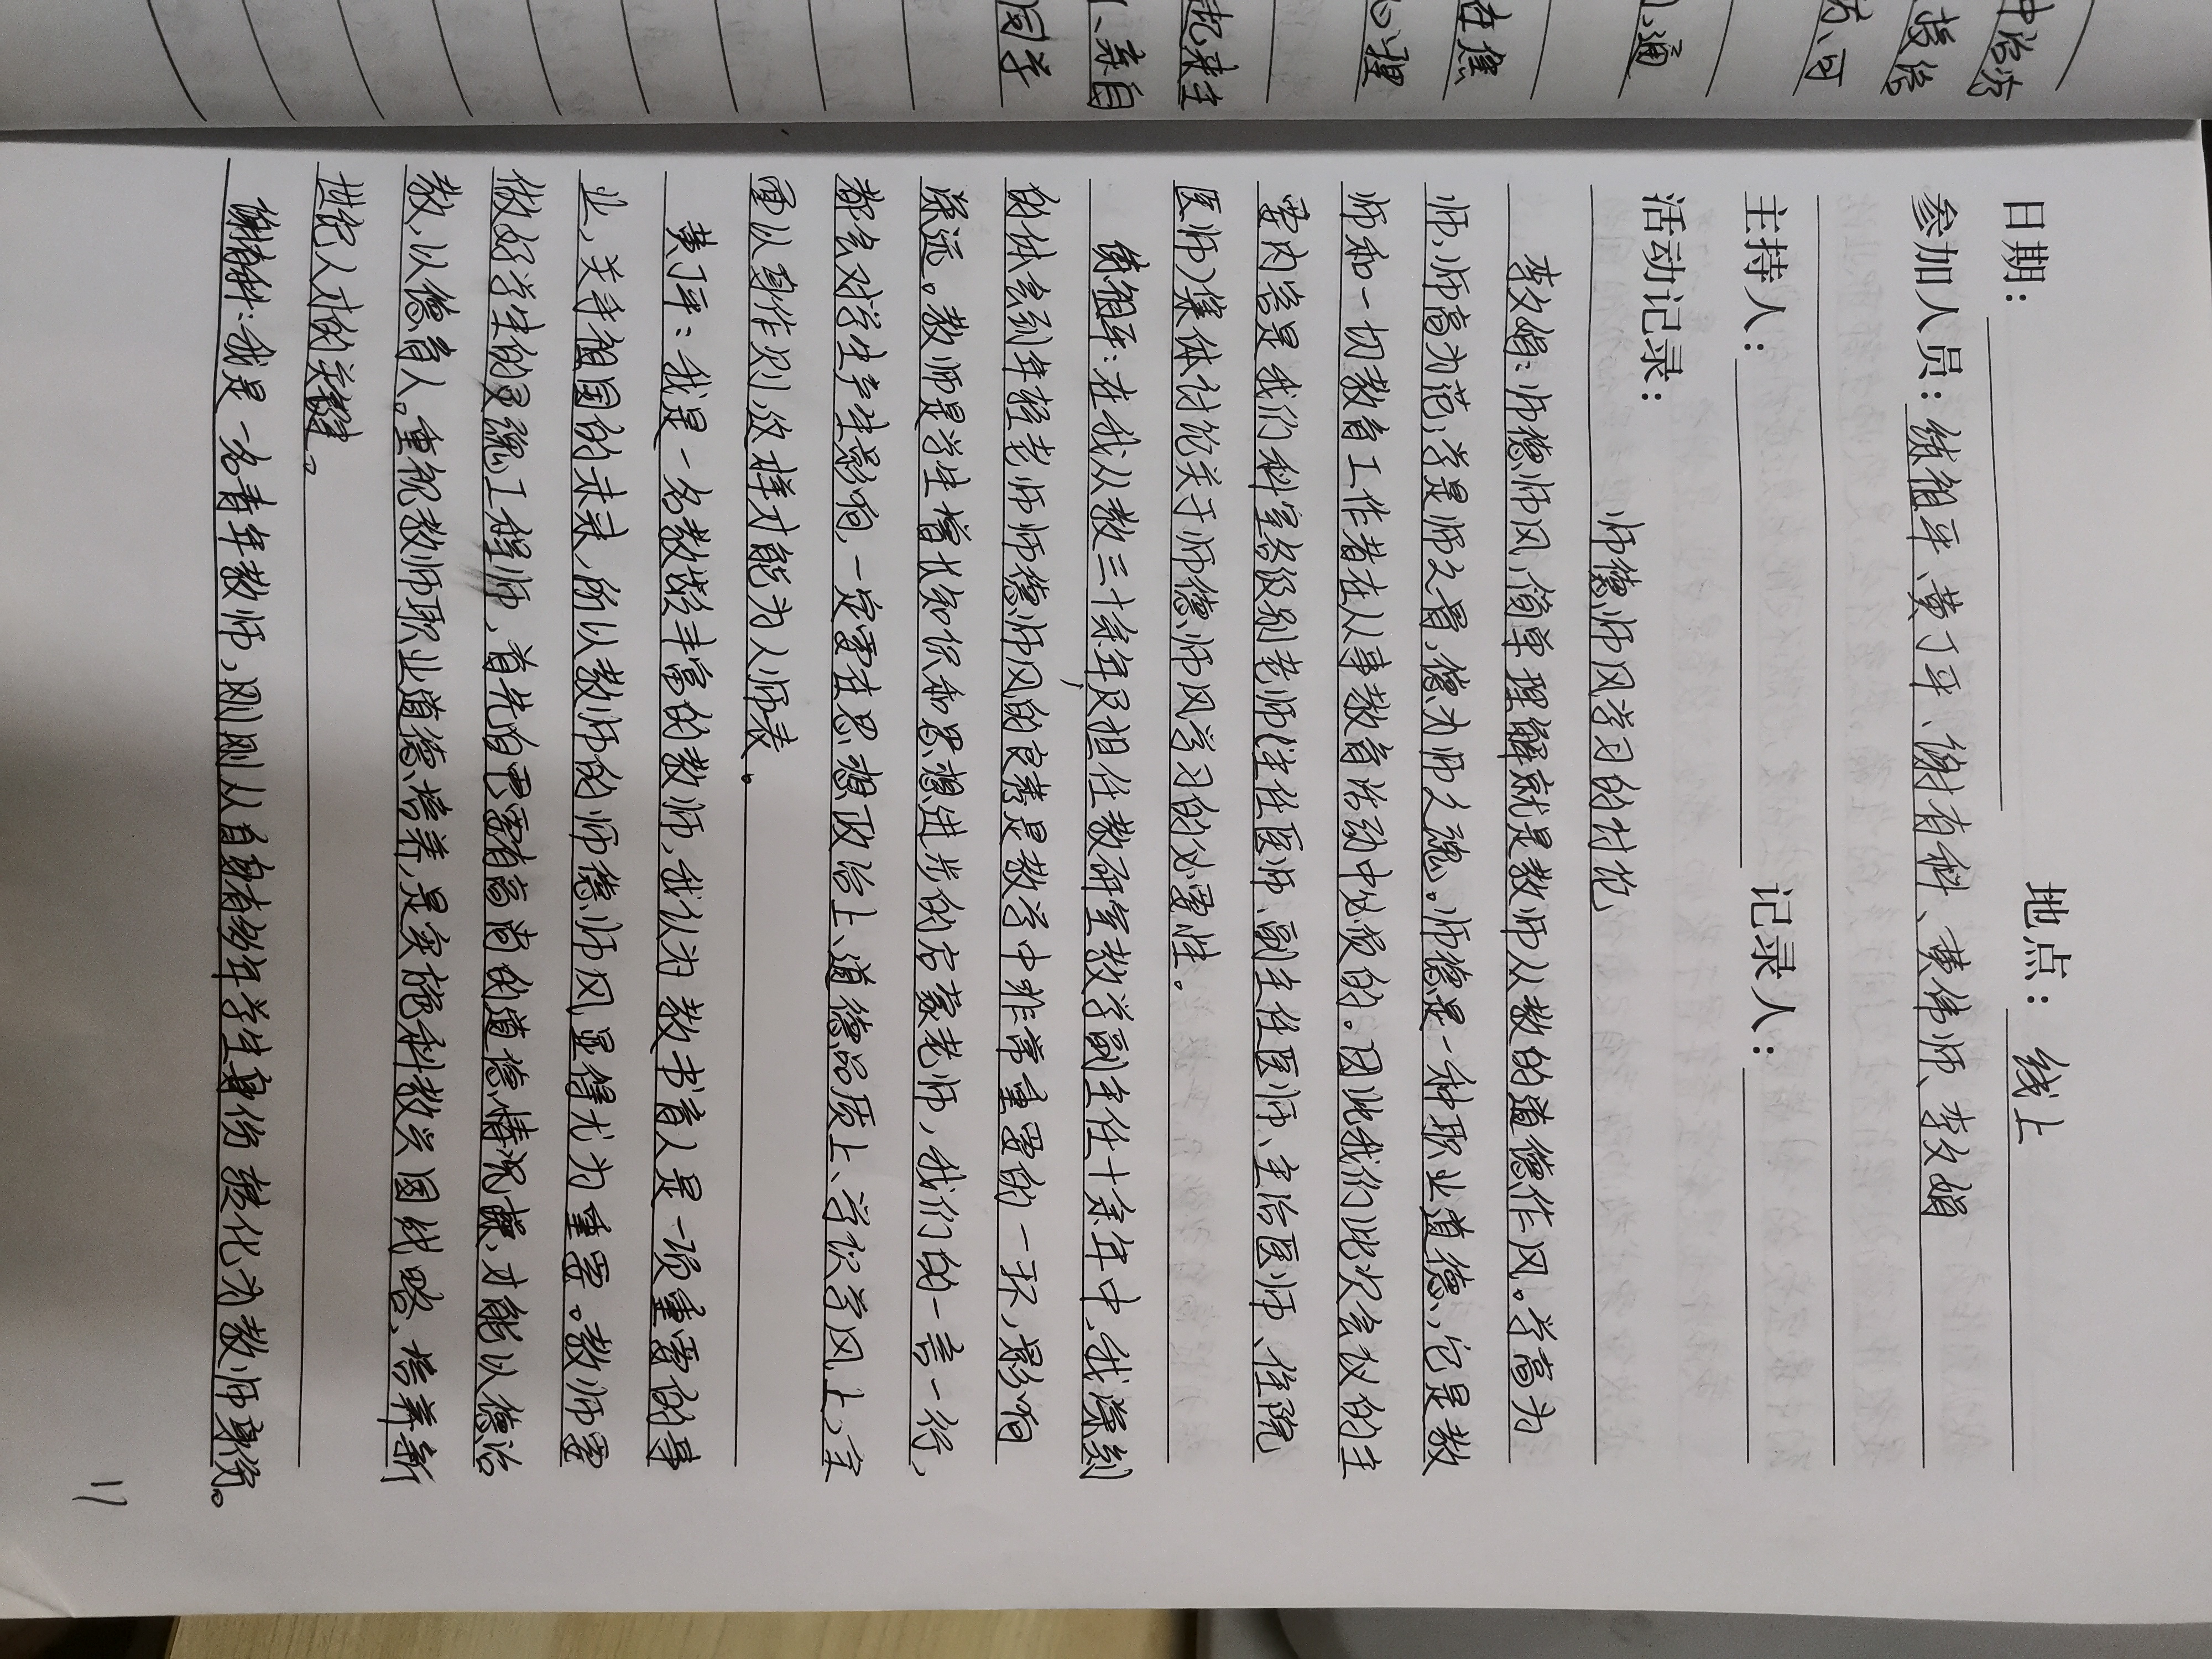 日期： 地点：线上
参加人员：练祖平、黄丁平、谢有科、黄伟师、李文娟
主持人： 记录人：
活动记录：
师德师风学习的讨论
李文娟：师德师风,简单理解就是教师从教的道德作风。学高为
师,师高为范,学是师之骨,德为师之魂。师德是一种职业道德,它是教
师和一切教育工作者在从事教育活动中必须的。因此我们此次会议的主
要内容是我们科室各级别老师(主任医师、副主任医师、主治医师、住院
医师)集体讨论关于师德师风学习的必要性。
练祖平:在我从教三十余年及担任教研室教学副主任十余年中,我深刻
的体会到年轻老师师德师风的良莠是教学中非常重要的一环,影响
深远。教师是学生增长知识和思想进步的启蒙老师,我们的一言一行,
都会对学生产生影响,一定要在思想政治上、道德品质上、学识学风上,全
面以身作则,这样才能为人师表。
黄丁平：我是一名教龄丰富的教师,我认为教书育人是一项重要的事
业,关乎祖国的未来,所以教师的师德师风显得尤为重要。教师要
做好学生的灵魂工程师,首先自己要有高尚的道德情操,才能以德治
教,以德育人。重视教师职业道德培养,是实施科教兴国战略,培养新
世纪人才的关键。
谢有科:我是一名青年教师,刚刚从自身学生身份转化为教师身份。
17
中治疗
成、可
1、通
在焦
心理
起来主
1、亲自
同学